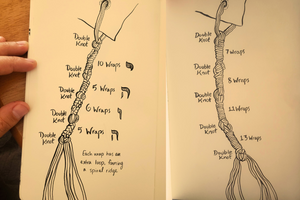 Double
Knot
10 Wraps י
Double
Knot
5 Wraps ה
Double
Knot
6 Wraps ו
Double
Knot
5 Wraps ה
Each wrap has an
extra loop, forming
a spiral ridge.
Double
Knot
7 Wraps
Double
Knot
8 Wraps
Double
Knot
11 Wraps
Double
Knot
13 Wraps
Double
Knot